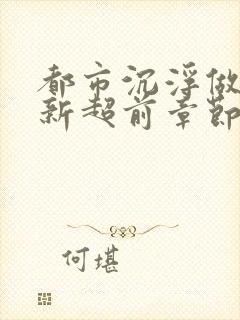 都市沉浮做
新超前章節
何堪